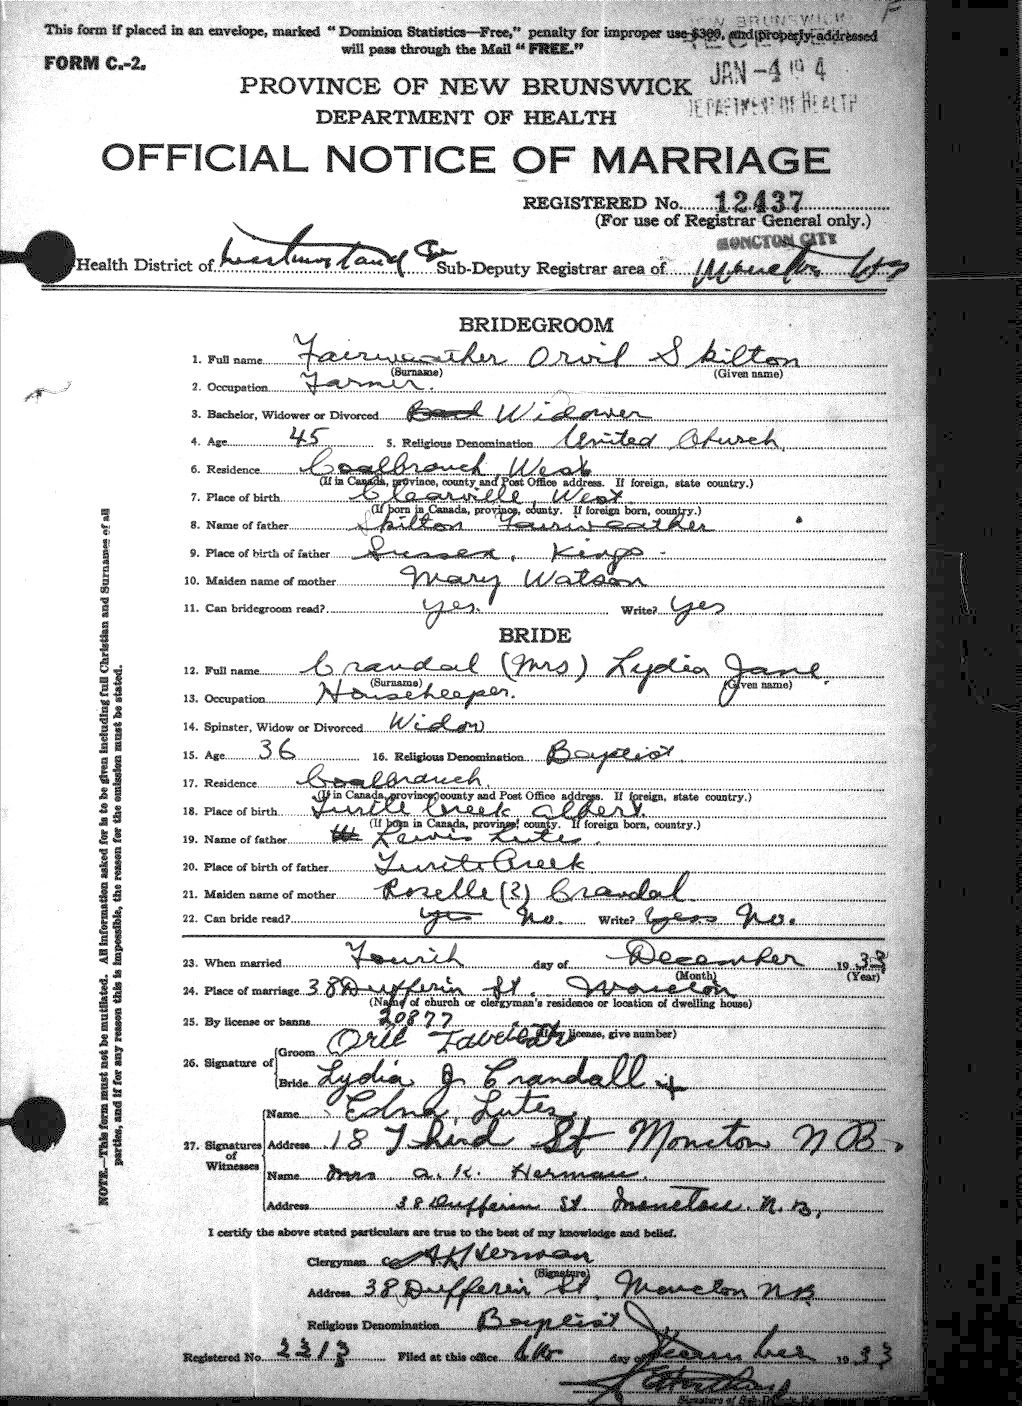 This form if placed in an envelope, marked “Dominion Statistics—Free,” penalty for improper use $300, and properly addressed
will pass through the Mail “FREE.”
NEW BRUNSWICK
FORM C.-2.
JAN -4 19 4
DEPARTMENT OF HEALTH
PROVINCE OF NEW BRUNSWICK
DEPARTMENT OF HEALTH
OFFICIAL NOTICE OF MARRIAGE
REGISTERED No. 12437
(For use of Registrar General only.)
MONCTON CITY
Health District of Westmorland Co Sub-Deputy Registrar area of Moncton
BRIDEGROOM
1. Full name Fairweather Orvil Skilton
(Surname) (Given name)
2. Occupation Farmer.
3. Bachelor, Widower or Divorced Widower
4. Age 45 5. Religious Denomination United Church
6. Residence Coalbranch West
(If in Canada, province, county and Post Office address. If foreign, state country.)
7. Place of birth Clearville, West
(If born in Canada, province, county. If foreign born, country.)
8. Name of father Skilton Fairweather
9. Place of birth of father Sussex, Kings
10. Maiden name of mother Mary Watson
11. Can bridegroom read? yes. Write? yes
BRIDE
12. Full name Crandal (Mrs) Lydia Jane.
(Surname) (Given name)
13. Occupation Housekeeper.
14. Spinster, Widow or Divorced Widow
15. Age 36 16. Religious Denomination Baptist.
17. Residence Coalbranch.
(If in Canada, province, county and Post Office address. If foreign, state country.)
18. Place of birth Turtle Creek Albert.
(If born in Canada, province, county. If foreign born, country.)
19. Name of father Lewis Lutes.
20. Place of birth of father Turtle Creek
21. Maiden name of mother Roselle (?) Crandal.
22. Can bride read? yes No. Write? yes No.
23. When married Fourth day of December 1933
(Month) (Year)
24. Place of marriage 38 Dufferin St. Moncton
(Name of church or clergyman's residence or location of dwelling house)
25. By license or banns 20877
(If by license, give number)
26. Signature of Groom
Bride Lydia J Crandall +
27. Signatures of Witnesses
Name Edna Lutes
Address 18 Third St Moncton N B
Name Mrs A. K. Herman.
Address 38 Dufferin St Moncton. N. B.
I certify the above stated particulars are true to the best of my knowledge and belief.
Clergyman A K Herman
(Signature)
Address 38 Dufferin St. Moncton N.B.
Religious Denomination Baptist
Registered No. 2313 Filed at this office day of December 1933
NOTE.—This form must not be mutilated. All information asked for is to be given including full Christian and Surnames of all
parties, and if for any reason this is impossible, the reason for the omission must be stated.